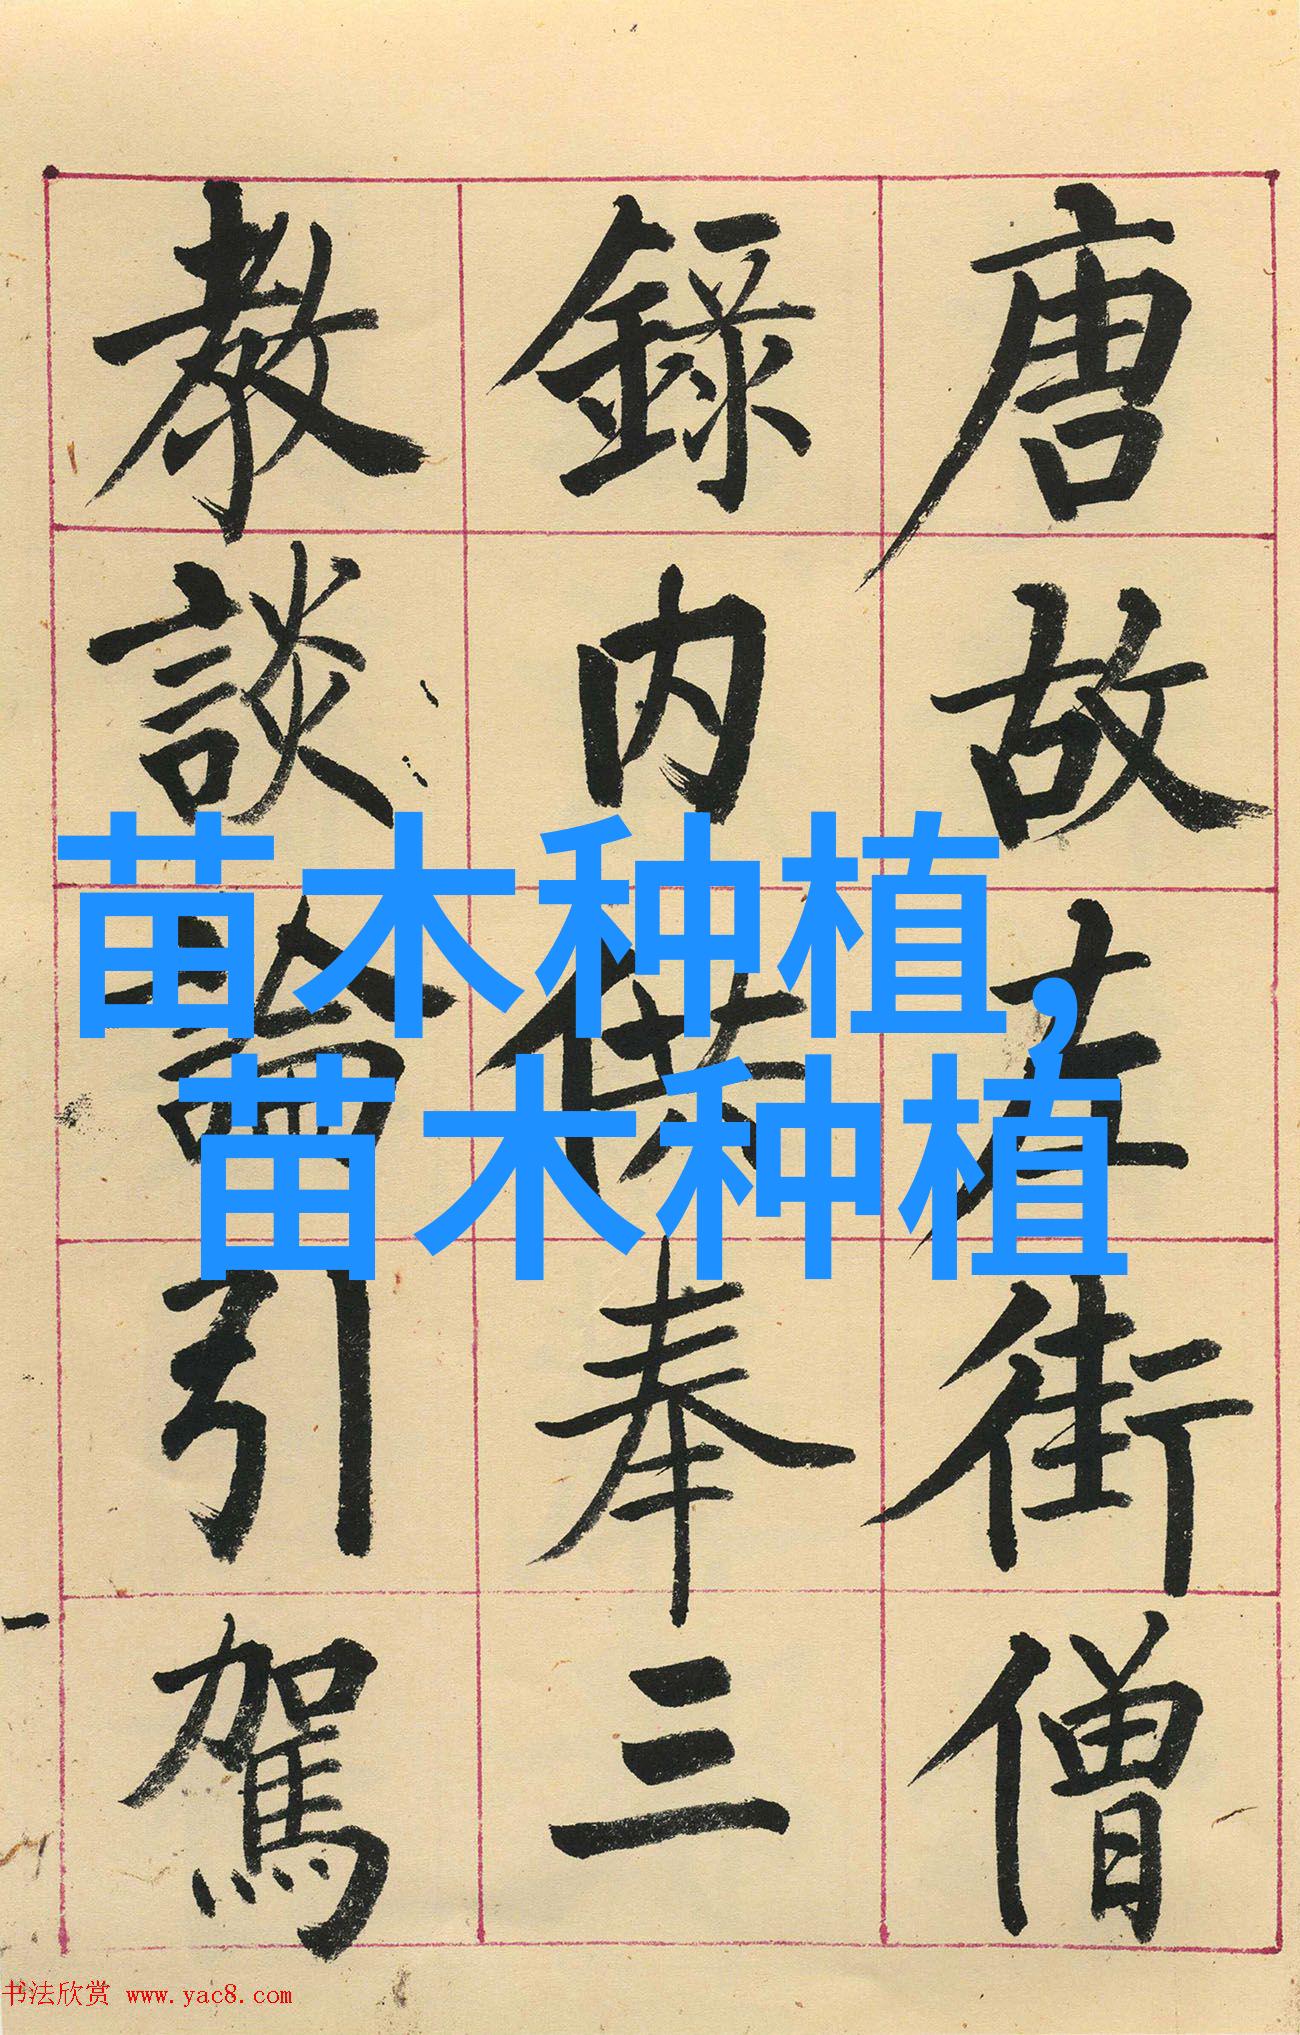 唐故左街僧
錄內供奉三
教談論引駕
苗木种植，
苗木种植
书法欣赏 www.yac8.com